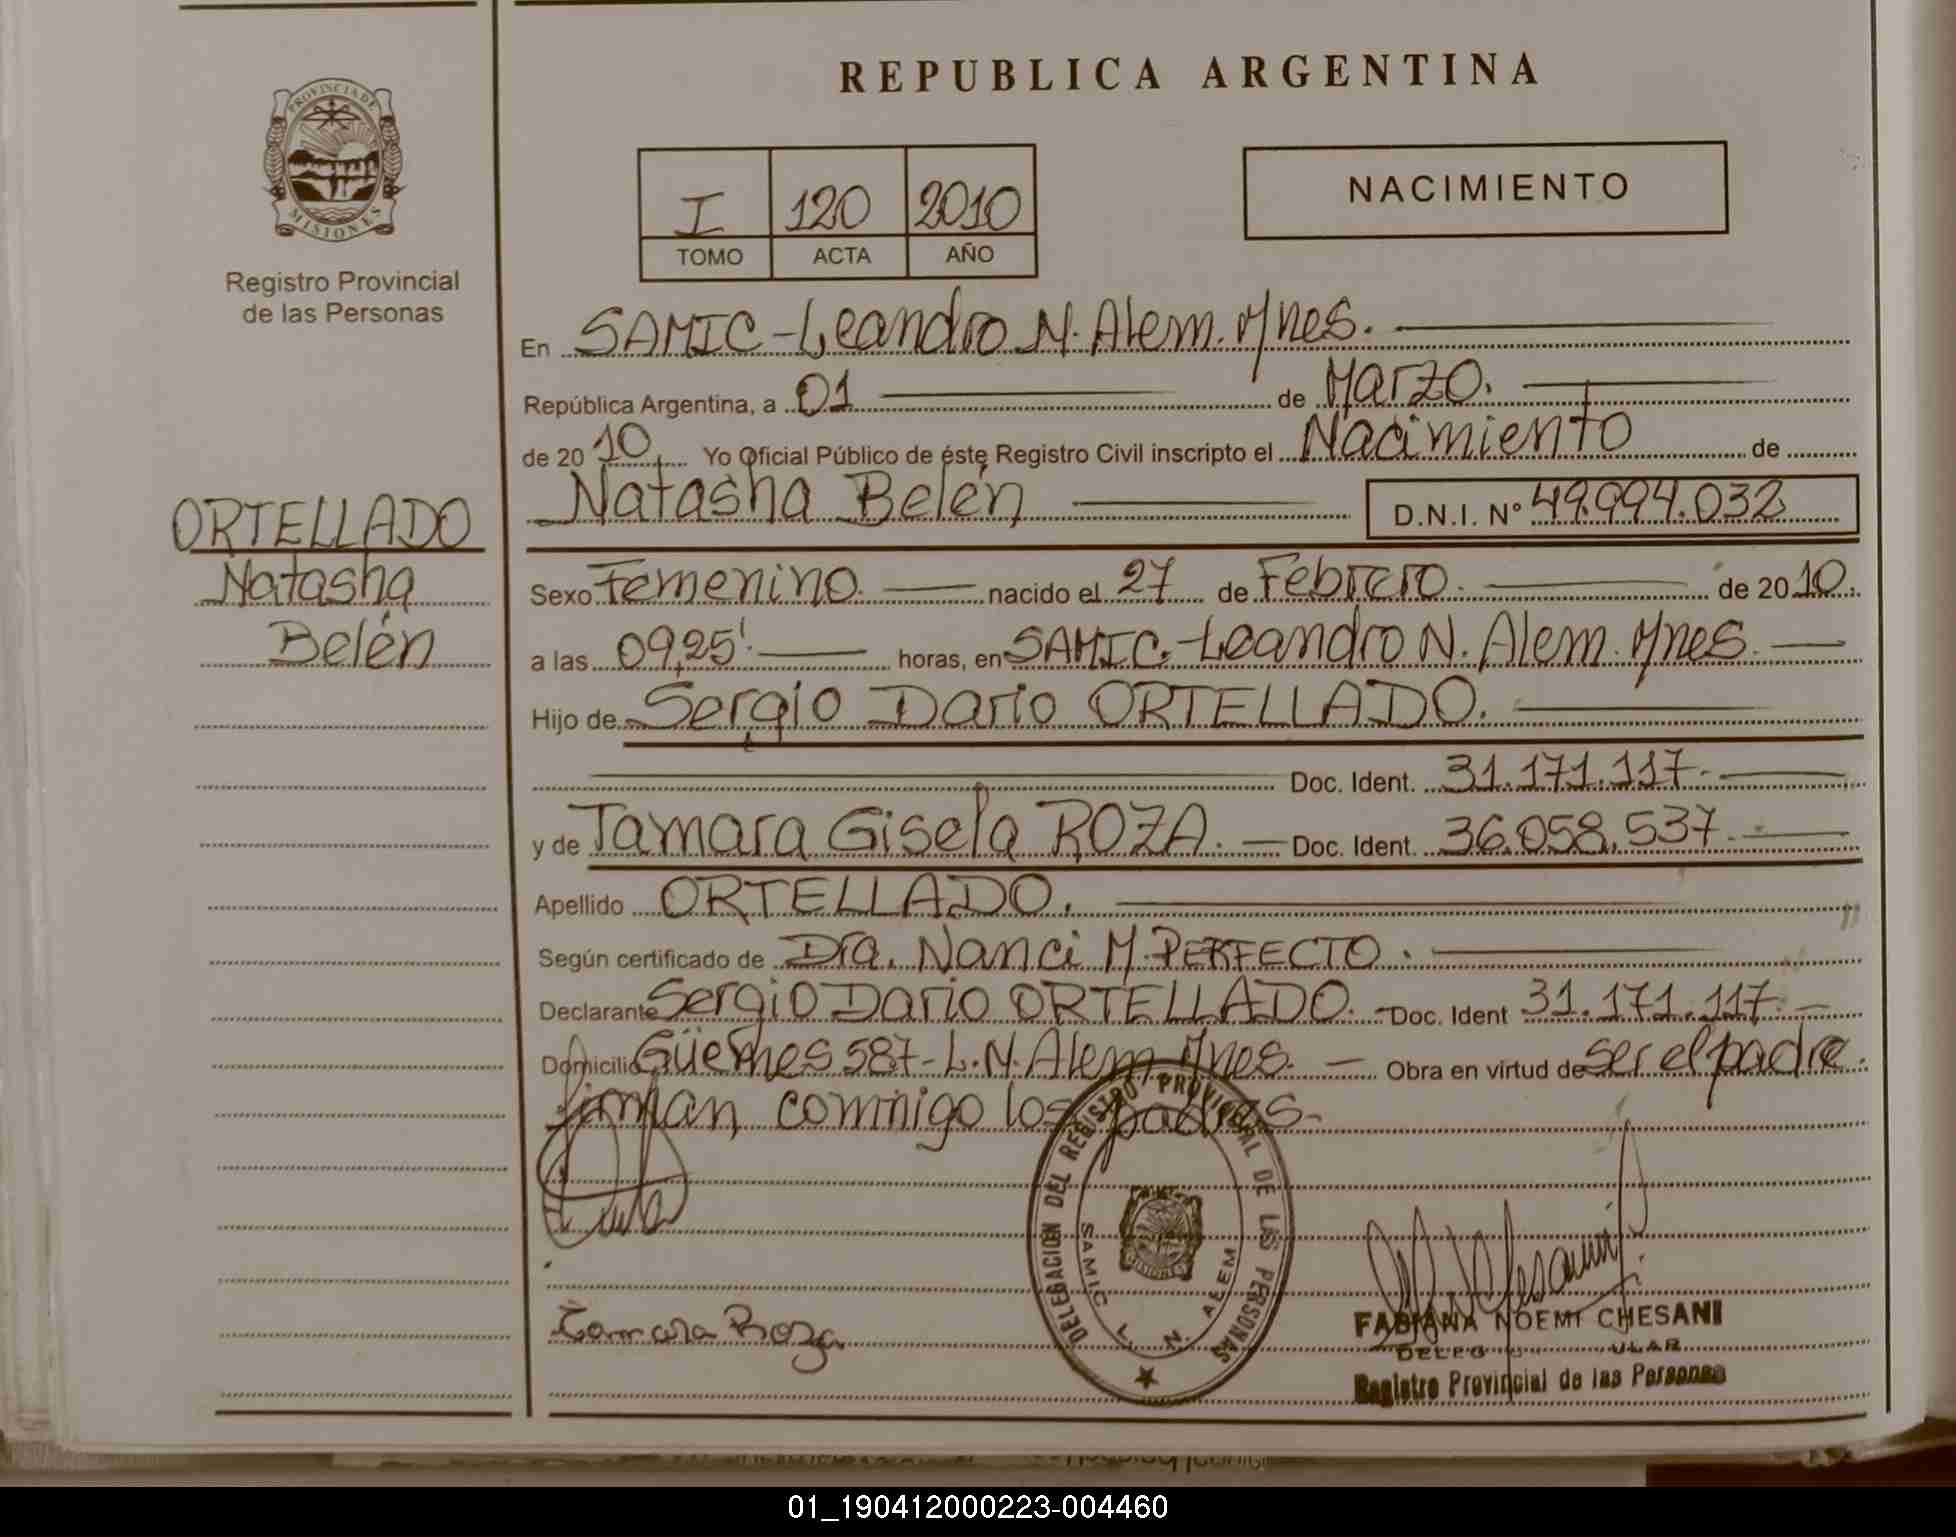 REPUBLICA ARGENTINA
PROVINCIA DE
MISIONES
Registro Provincial
de las Personas
I 120 2010
TOMO ACTA AÑO
NACIMIENTO
En SAMIC-Leandro N. Alem. Mnes.
República Argentina, a 01 de Marzo.
de 20 10 Yo Oficial Público de éste Registro Civil inscripto el Nacimiento de
Natasha Belén D.N.I. Nº 49.994.032
ORTELLADO
Natasha
Belén
Sexo Femenino. nacido el 27 de Febrero. de 20 10.
a las 09,25' horas, en SAMIC.-Leandro N. Alem. Mnes.
Hijo de Sergio Dario ORTELLADO.
Doc. Ident. 31.171.117.-
y de Tamara Gisela ROZA. Doc. Ident. 36.058.537.
Apellido ORTELLADO.
Según certificado de Dra. Nanci M. PERFECTO.
Declarante Sergio Dario ORTELLADO. -Doc. Ident 31.171.117.-
Domicilio Güemes 587-L.N. Alem, Mnes. Obra en virtud de ser el padre.
firman conmigo los padres.-
DELEGACION DEL REGISTRO PROVINCIAL DE LAS PERSONAS
SAMIC L. N. ALEM
MISIONES
Tamara Roza
FABIANA NOEMI CHESANI
Registro Provincial de las Personas
01_190412000223-004460